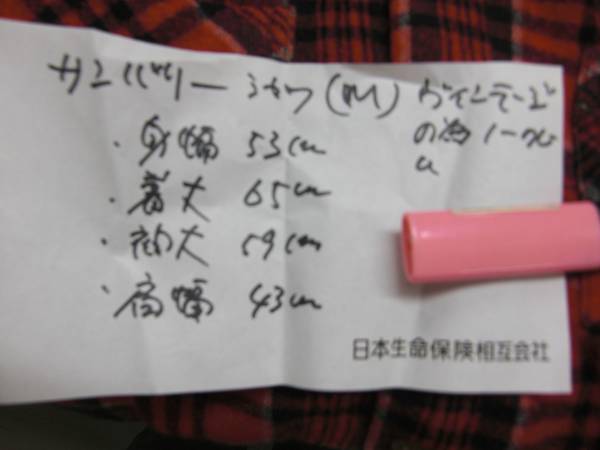 サンバリー シャツ(M)
ヴィンテージ
の為ノークレ
・身幅 53cm
・着丈 65cm
・袖丈 59cm
・肩幅 43cm
日本生命保険相互会社